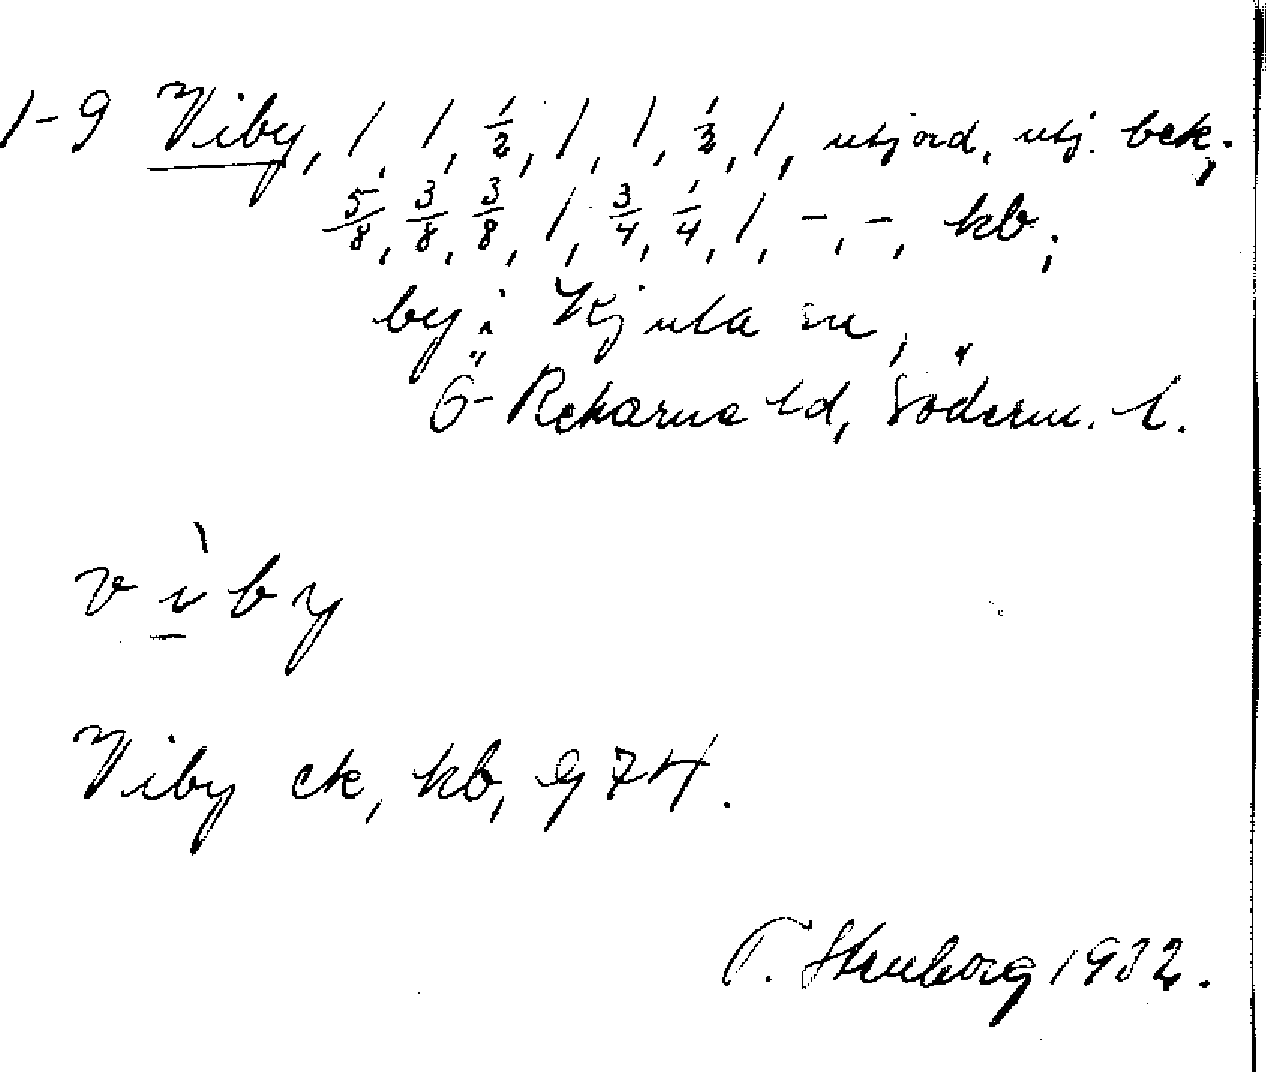 1-9 Viby, 1, 1, 1/2, 1, 1, 1/2, 1, utjord, utj. bek.;
5/8, 3/8, 3/8, 1, 3/4, 1/4, 1, -, -, kb;
by i Kjula sn,
Ö-Rekarne hd, Söderm. l.
vìby
Viby ck, kb, g 74.
T. Stenborg 1932.